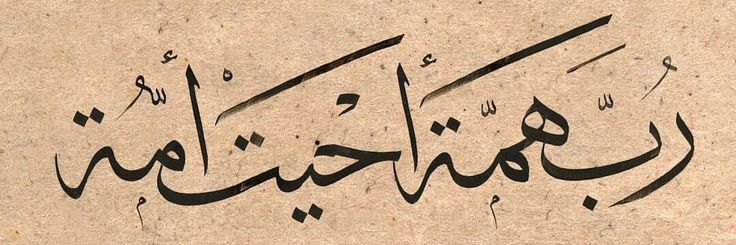 رُبَّ همّة أحْيت أمُّة